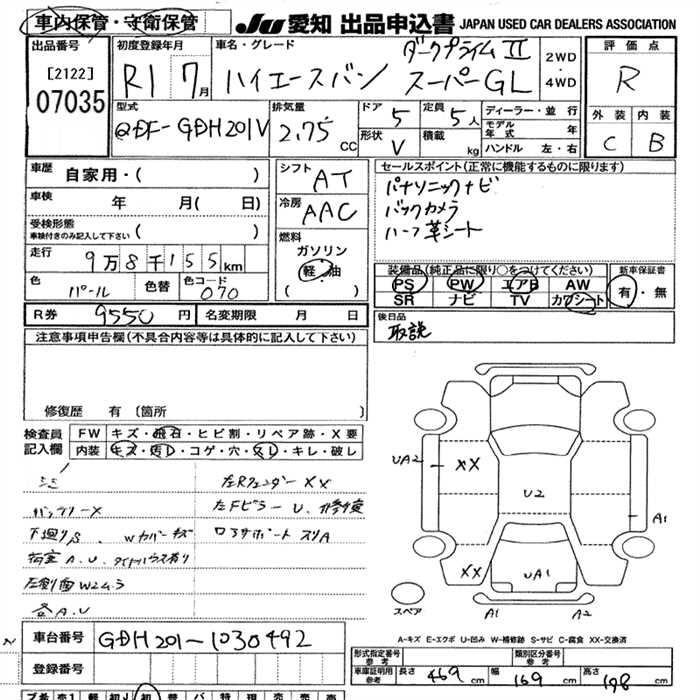 車内保管・守衛保管
JU 愛知 出品申込書 JAPAN USED CAR DEALERS ASSOCIATION
出品番号
[2122]
07035
初度登録年月
R1 7月
車名・グレード
ダークプライムⅡ
ハイエースバン スーパーGL
2WD
・
4WD
評価点
R
外装 内装
C B
型式
QDF-GDH201V
排気量
2.75 CC
ドア 5
定員 5人
形状 V
積載 kg
ディーラー・並行
モデル年式 年
ハンドル 左・右
車歴 自家用・( )
車検 年 月( 日)
受検形態
車検付きのみ記入して下さい ( )
走行
9万8千155km
色 パール
色替
色コード 070
シフト AT
冷房 AAC
燃料
ガソリン
軽・油
( )
セールスポイント(正常に機能するものに限ります)
パナソニックナビ
バックカメラ
ハーフ革シート
装備品(純正品に限り○をつけてください)
PS PW エアB AW
SR ナビ TV カワシート
新車保証書
有・無
R券 9550円
名変期限 月 日
後日品
取説
注意事項申告欄(不具合内容等は具体的に記入して下さい)
修復歴 有 〔箇所
検査員記入欄
FW キズ・飛石・ヒビ割・リペア跡・X要
内装 キズ・汚レ・コゲ・穴・スレ・キレ・破レ
左Rフェンダー XX
バッテリーX
左Fピラー U、修復
下廻りS、Wカバーキズ
荷室A.U、タイヤハウス有り
左側面W2ムラ
各A.U
UA2
XX
U2
A1
XX
UA1
スペア
A1
A2
A-キズ E-エクボ U-凹み W-補修跡 S-サビ C-腐食 XX-交換済
車台番号 GDH201-1030492
登録番号
形式指定番号 参考
類別区分番号 参考
車庫証明用 参考
長さ 469cm 幅 169cm 高さ 198cm